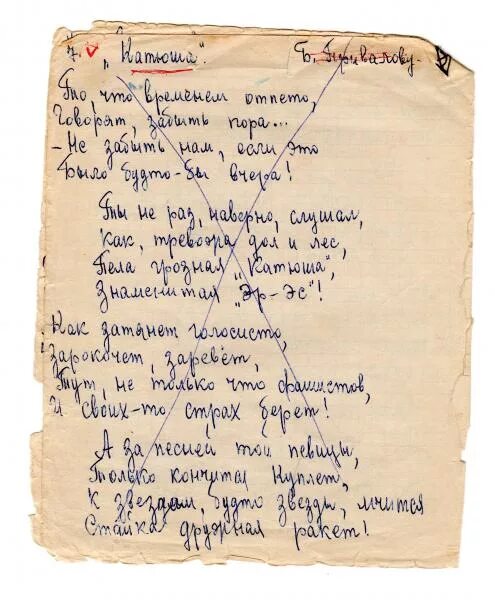 7. v „Катюша". Б. Привалову.
То, что временем отпето,
Говорят, забыть пора...
- Не забыть нам, если это
Было будто-бы вчера!
Ты не раз, наверно, слушал,
Как, тревожа дол и лес,
Пела грозная „Катюша",
Знаменитая „Эр-Эс"!
Как затянет голосисто,
Зарокочет, заревёт,
Тут, не только что фашистов,
И своих-то страх берет!
А за песней той певицы,
Только кончится куплет,
К звездам, будто звезды, мчится
Стайка дружная ракет!